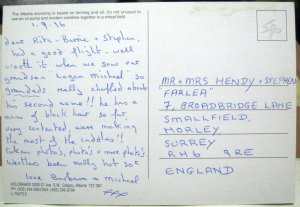 The Alberta economy is based on farming and oil. It's not unusual to
see an oil pump and modern combine together in a wheat field.
1-9-96
dear Rita - Barrie + Stephen,
had a good flight - well
worth it when we saw our
grandson logan michael so
grandads really chuffed about
his second name!! he has a
mass of black hair so far
very contented, were making
the most of the cuddles!!
taken photo's, photo's + more photo's.
weather been really hot 30c
love Barbara & michael
xxx
MR + MRS HENDY + STEPHEN
"FARLEA"
7, BROADBRIDGE LANE
SMALLFIELD,
HORLEY
SURREY
RH6 9RE
ENGLAND